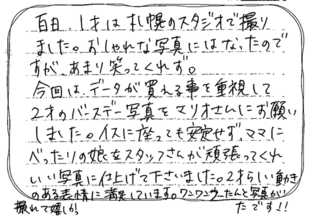 百日、1才は札幌のスタジオで撮り
ました。おしゃれな写真にはなったので
すが、あまり笑ってくれず。
今回は、データが買える事を重視して
2才のバースデー写真をマリオさんにお願い
しました。イスに座っても安定せず、ママに
べったりの娘をスタッフさんが頑張ってくれ
いい写真に仕上げて下さいました。2才らしい動き
のある表情に満足しています。ワンワンワーたんと写真が
撮れて嬉しか
たです!!